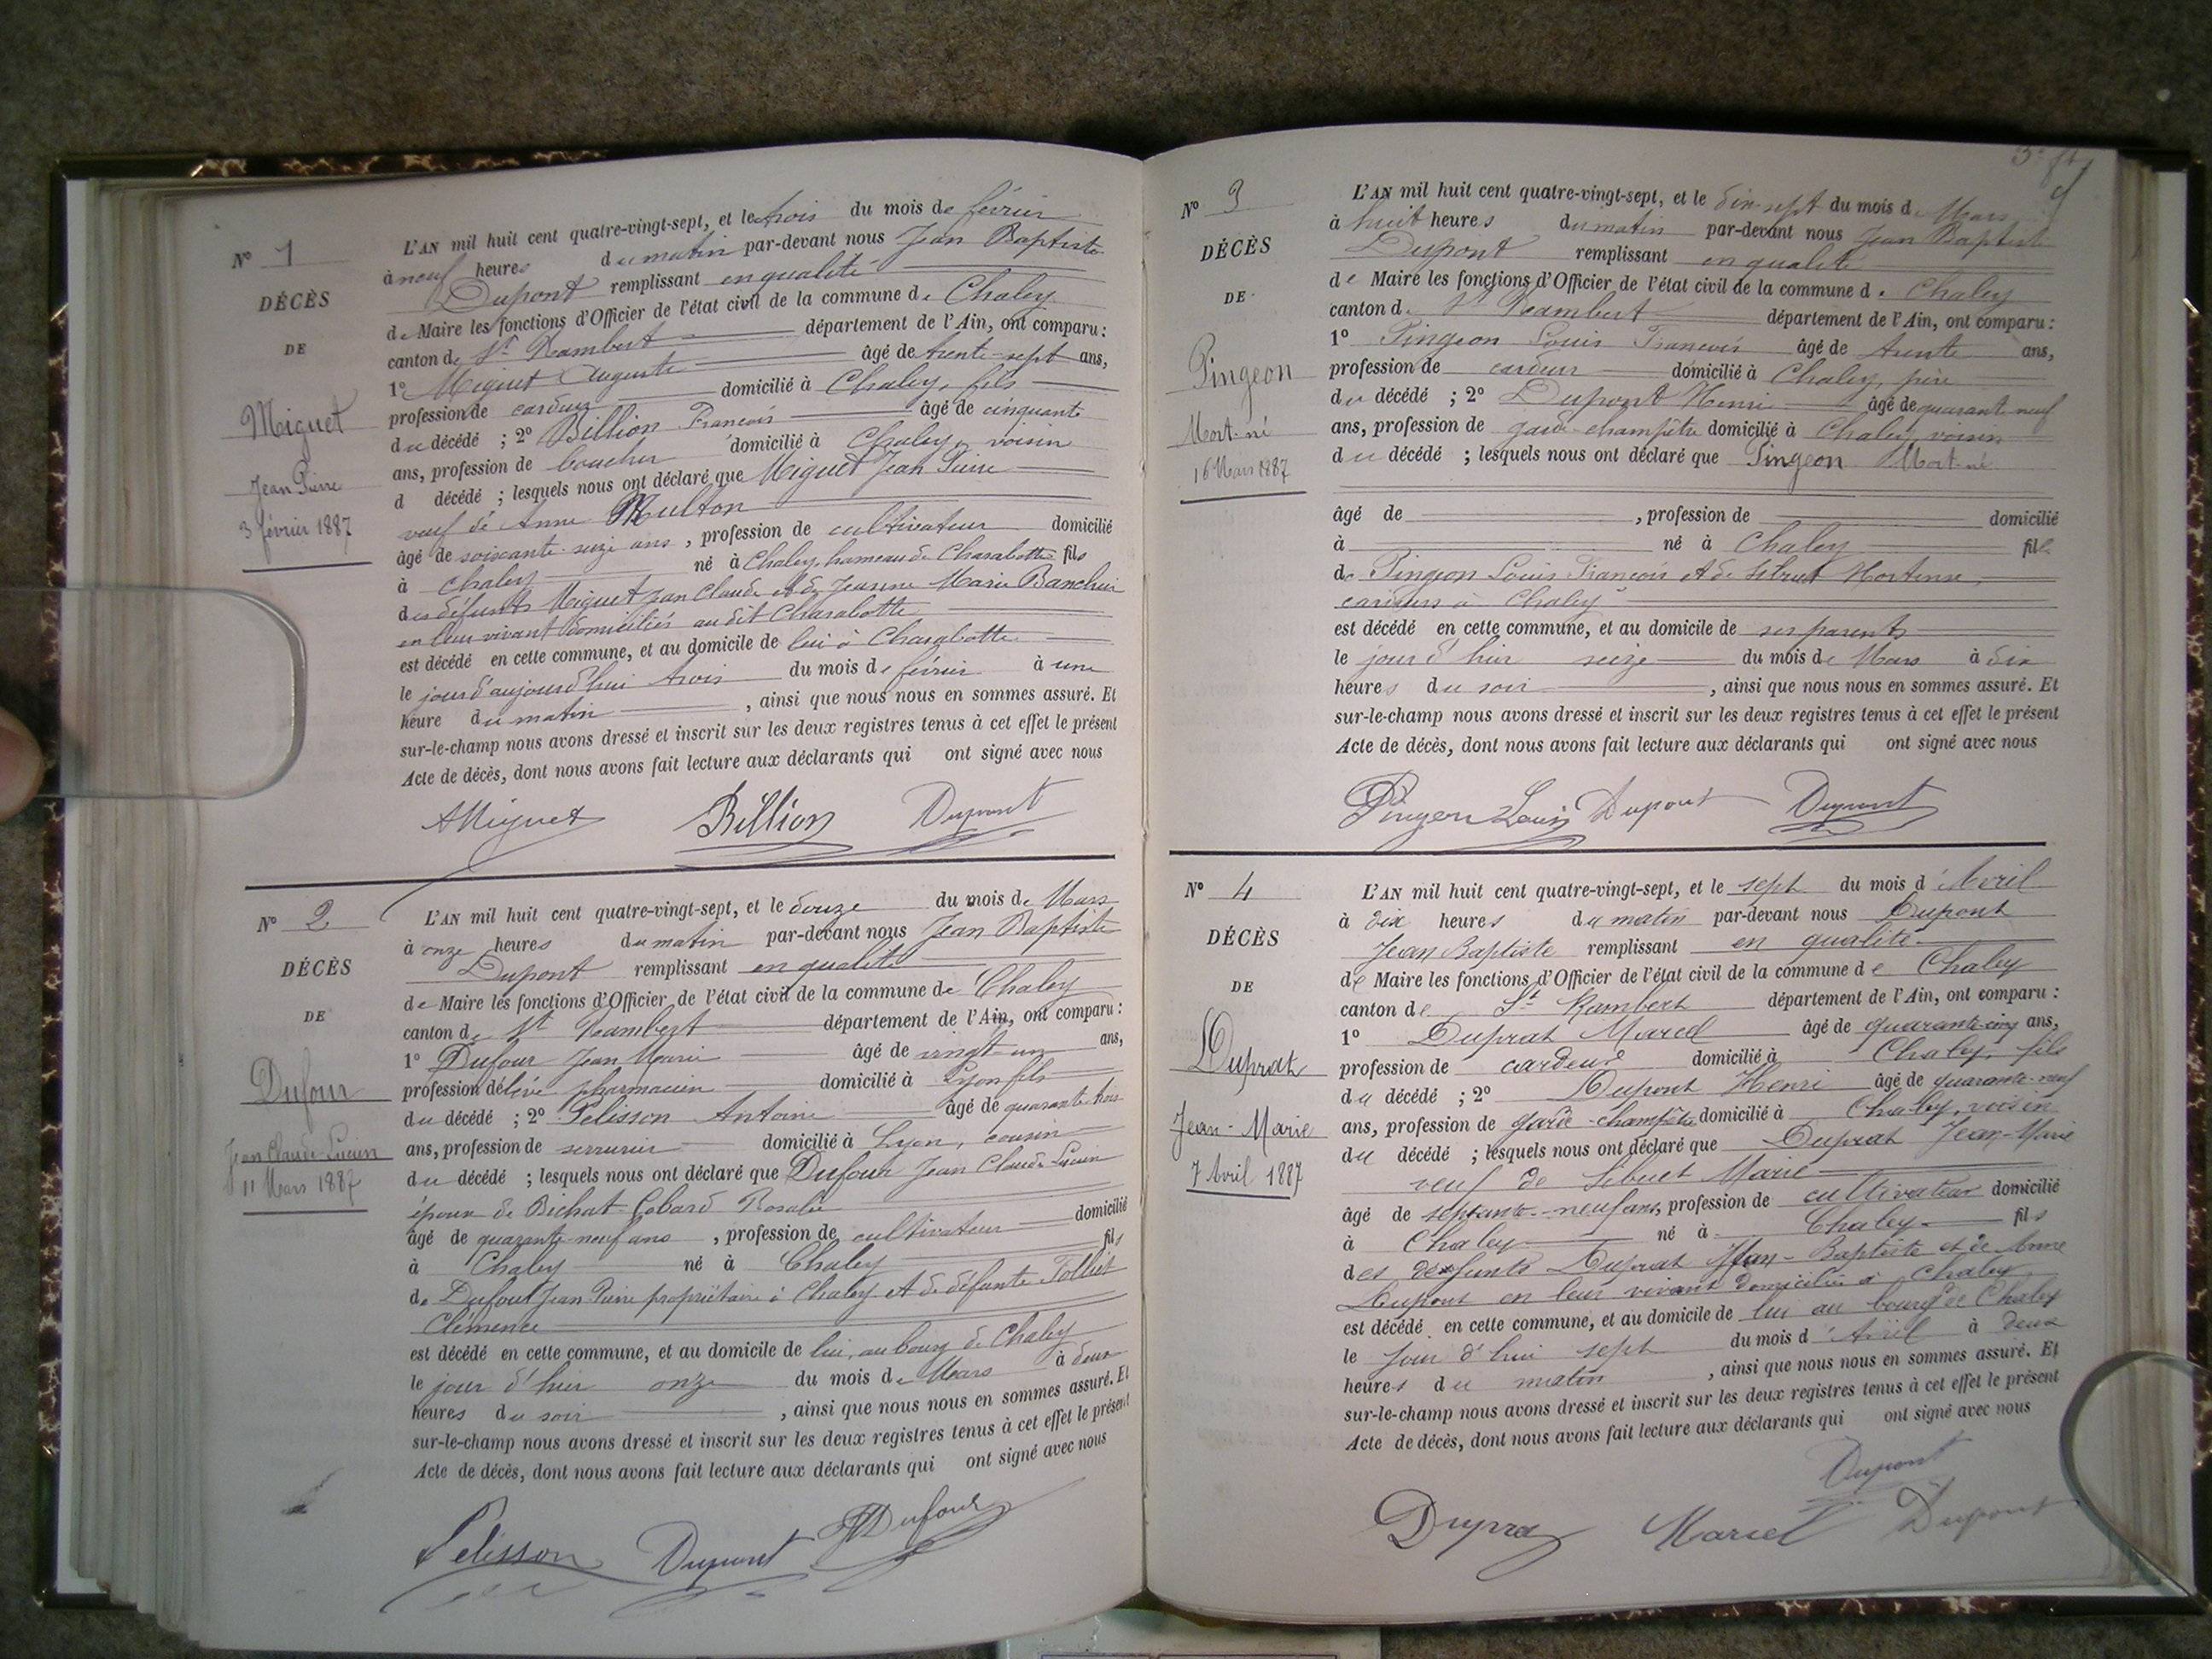 N° 1
DÉCÈS
DE
Miguet
Jean Pierre
3 février 1887
L'AN mil huit cent quatre-vingt-sept, et le trois du mois de février
à neuf heures du matin par-devant nous Jean Baptiste
Dupont remplissant en qualité
de Maire les fonctions d'Officier de l'état civil de la commune de Chaley
canton de St Rambert département de l'Ain, ont comparu :
1° Miguet Auguste âgé de trente-sept ans,
profession de cardeur domicilié à Chaley, fils
du décédé ; 2° Billion François âgé de cinquante
ans, profession de boucher domicilié à Chaley, voisin
d décédé ; lesquels nous ont déclaré que Miguet Jean Pierre
veuf de Anne Multon
âgé de soixante-seize ans, profession de cultivateur domicilié
à Chaley né à Chaley, hameau de Charabotte fils
des défunts Miguet Jean Claude et de Jeanne Marie
en leur vivant domiciliés au dit Charabotte
est décédé en cette commune, et au domicile de lui à Charabotte
le jour d'aujourd'hui trois du mois de février à une
heure du matin , ainsi que nous nous en sommes assuré. Et
sur-le-champ nous avons dressé et inscrit sur les deux registres tenus à cet effet le présent
Acte de décès, dont nous avons fait lecture aux déclarants qui ont signé avec nous
AMiguet Billion Dupont
N° 2
DÉCÈS
DE
Dufour
Jean Claude Lucien
11 Mars 1887
L'AN mil huit cent quatre-vingt-sept, et le douze du mois de Mars
à onze heures du matin par-devant nous Jean Baptiste
Dupont remplissant en qualité
de Maire les fonctions d'Officier de l'état civil de la commune de Chaley
canton de St Rambert département de l'Ain, ont comparu :
1° Dufour Jean Marie âgé de vingt-un ans,
profession d'élève pharmacien domicilié à Lyon fils
du décédé ; 2° Pelisson Antoine âgé de quarante trois
ans, profession de serrurier domicilié à Lyon, cousin
du décédé ; lesquels nous ont déclaré que Dufour Jean Claude Lucien
époux de Bichat-Cobard Rosalie
âgé de quarante-neuf ans , profession de cultivateur domicilié
à Chaley né à Chaley fils
de Dufour Jean Pierre propriétaire à Chaley et de défunte Tolliet
Clémence
est décédé en cette commune, et au domicile de lui, au bourg de Chaley
le jour d'hier onze du mois de Mars à deux
heures du soir , ainsi que nous nous en sommes assuré. Et
sur-le-champ nous avons dressé et inscrit sur les deux registres tenus à cet effet le présent
Acte de décès, dont nous avons fait lecture aux déclarants qui ont signé avec nous
Pelisson Dupont Dufour
N° 3
DÉCÈS
DE
Pingeon
Mort-né
16 Mars 1887
L'AN mil huit cent quatre-vingt-sept, et le dix-sept du mois de Mars
à huit heures du matin par-devant nous Jean Baptiste
Dupont remplissant en qualité
de Maire les fonctions d'Officier de l'état civil de la commune de Chaley
canton de St Rambert département de l'Ain, ont comparu :
1° Pingeon Louis François âgé de trente ans,
profession de cardeur domicilié à Chaley, père
du décédé ; 2° Dupont Henri âgé de quarante neuf
ans, profession de garde-champêtre domicilié à Chaley, voisin
du décédé ; lesquels nous ont déclaré que Pingeon Mort-né
âgé de , profession de domicilié
à né à Chaley fils
de Pingeon Louis François et de Sibuet Hortense,
cardeurs à Chaley
est décédé en cette commune, et au domicile de ses parents
le jour d'hier seize du mois de Mars à dix
heures du soir , ainsi que nous nous en sommes assuré. Et
sur-le-champ nous avons dressé et inscrit sur les deux registres tenus à cet effet le présent
Acte de décès, dont nous avons fait lecture aux déclarants qui ont signé avec nous
Pingeon Louis Dupont Dupont
N° 4
DÉCÈS
DE
Duprat
Jean-Marie
7 Avril 1887
L'AN mil huit cent quatre-vingt-sept, et le sept du mois d'Avril
à dix heures du matin par-devant nous Dupont
Jean Baptiste remplissant en qualité
de Maire les fonctions d'Officier de l'état civil de la commune de Chaley
canton de St Rambert département de l'Ain, ont comparu :
1° Duprat Marcel âgé de quarante-cinq ans,
profession de cardeur domicilié à Chaley, fils
du décédé ; 2° Dupont Henri âgé de quarante-neuf
ans, profession de garde-champêtre domicilié à Chaley, voisin
du décédé ; lesquels nous ont déclaré que Duprat Jean-Marie
veuf de Sibuet Marie
âgé de septante-neuf ans, profession de cultivateur domicilié
à Chaley né à Chaley fils
des défunts Duprat Jean-Baptiste et de Anne
Dupont en leur vivant domiciliés à Chaley
est décédé en cette commune, et au domicile de lui au bourg de Chaley
le jour d'hui sept du mois d'Avril à deux
heures du matin , ainsi que nous nous en sommes assuré. Et
sur-le-champ nous avons dressé et inscrit sur les deux registres tenus à cet effet le présent
Acte de décès, dont nous avons fait lecture aux déclarants qui ont signé avec nous
Dupont
Duprat Marcel Dupont